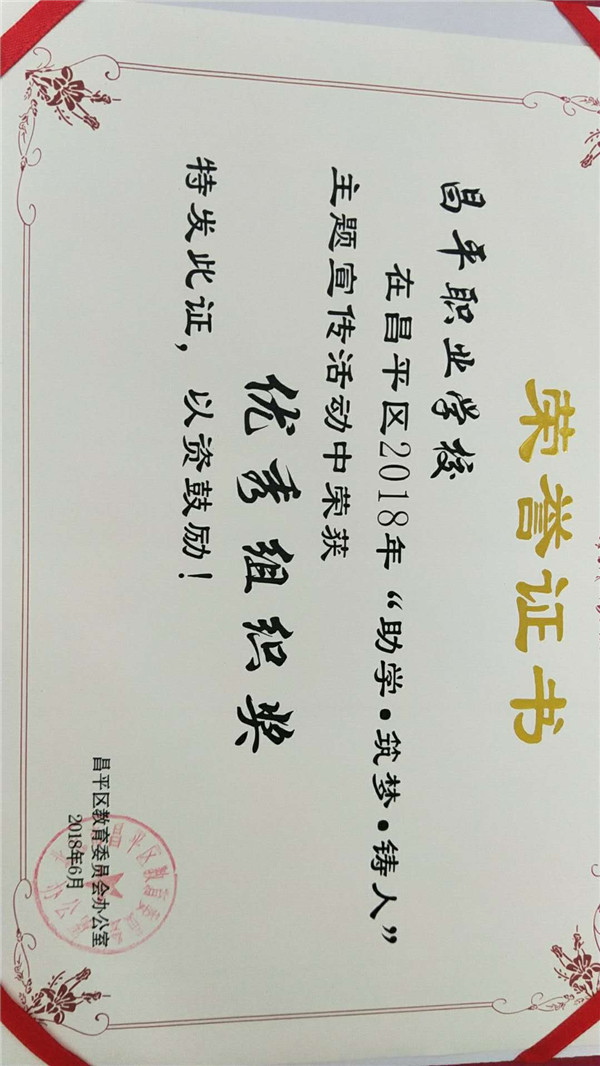 荣誉证书
昌平职业学校
在昌平区2018年“助学•筑梦•铸人”
主题宣传活动中荣获
优秀组织奖
特发此证，以资鼓励！
昌平区教育委员会办公室
2018年6月